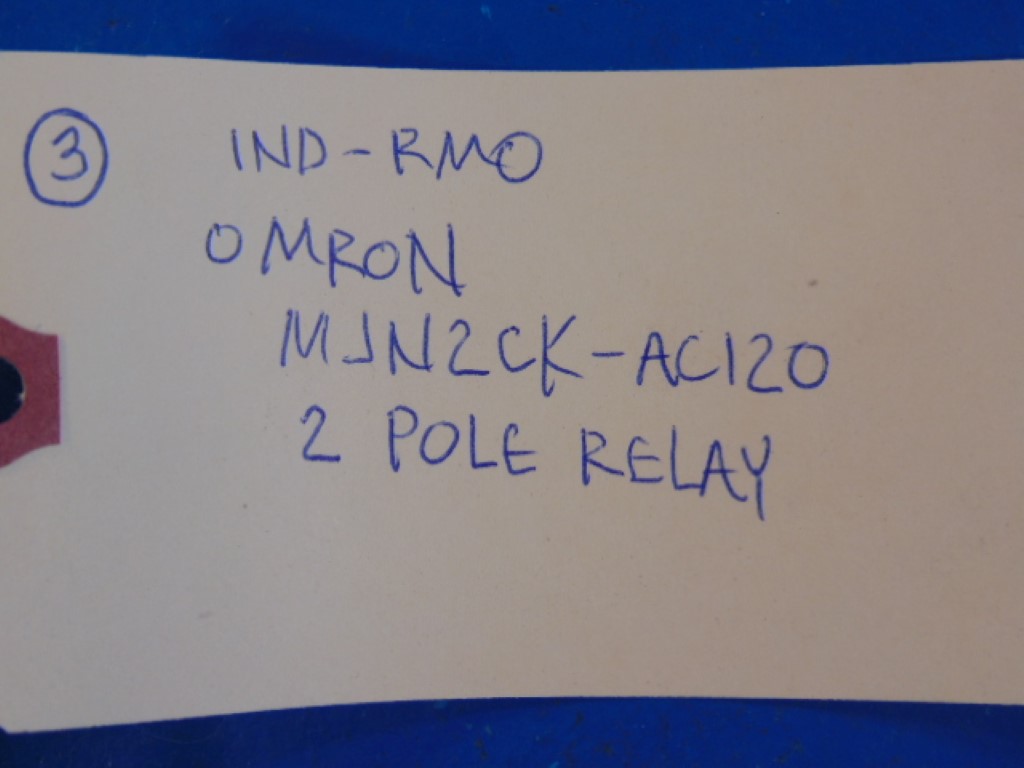 3 IND-RMO
OMRON
MJN2CK-AC120
2 POLE RELAY